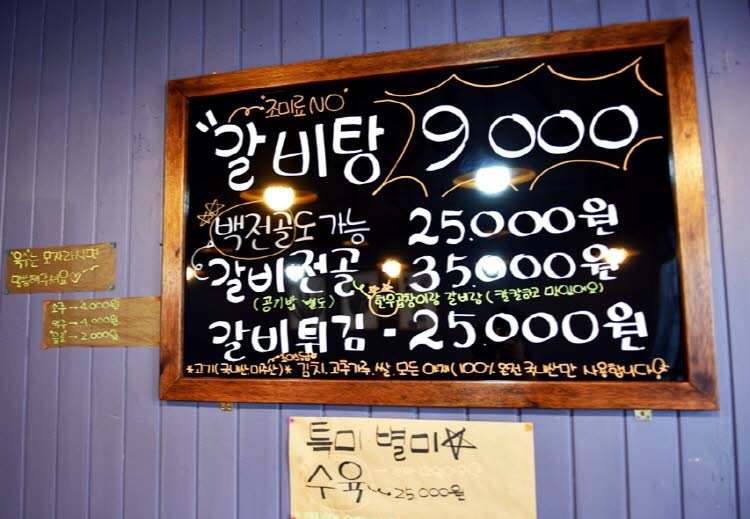 "조미료 NO"
"갈비탕 9000
백전골도 가능 25.000원
갈비전골 35.000원
(공기밥 별도) 한우곱창이랑 갈비랑 (칼칼하고 맛있어요)
갈비튀김 - 25.000원
*고기(국내산,미국산)* 김치.고추가루.쌀.모든 야채(100% 완전 국내산만 사용합니다)
"육수"는 모자라시면
말씀해주세요
소주 → 4,000원
맥주 → 4,000원
음료 → 2,000원
특미.별미☆
수육 25,000원